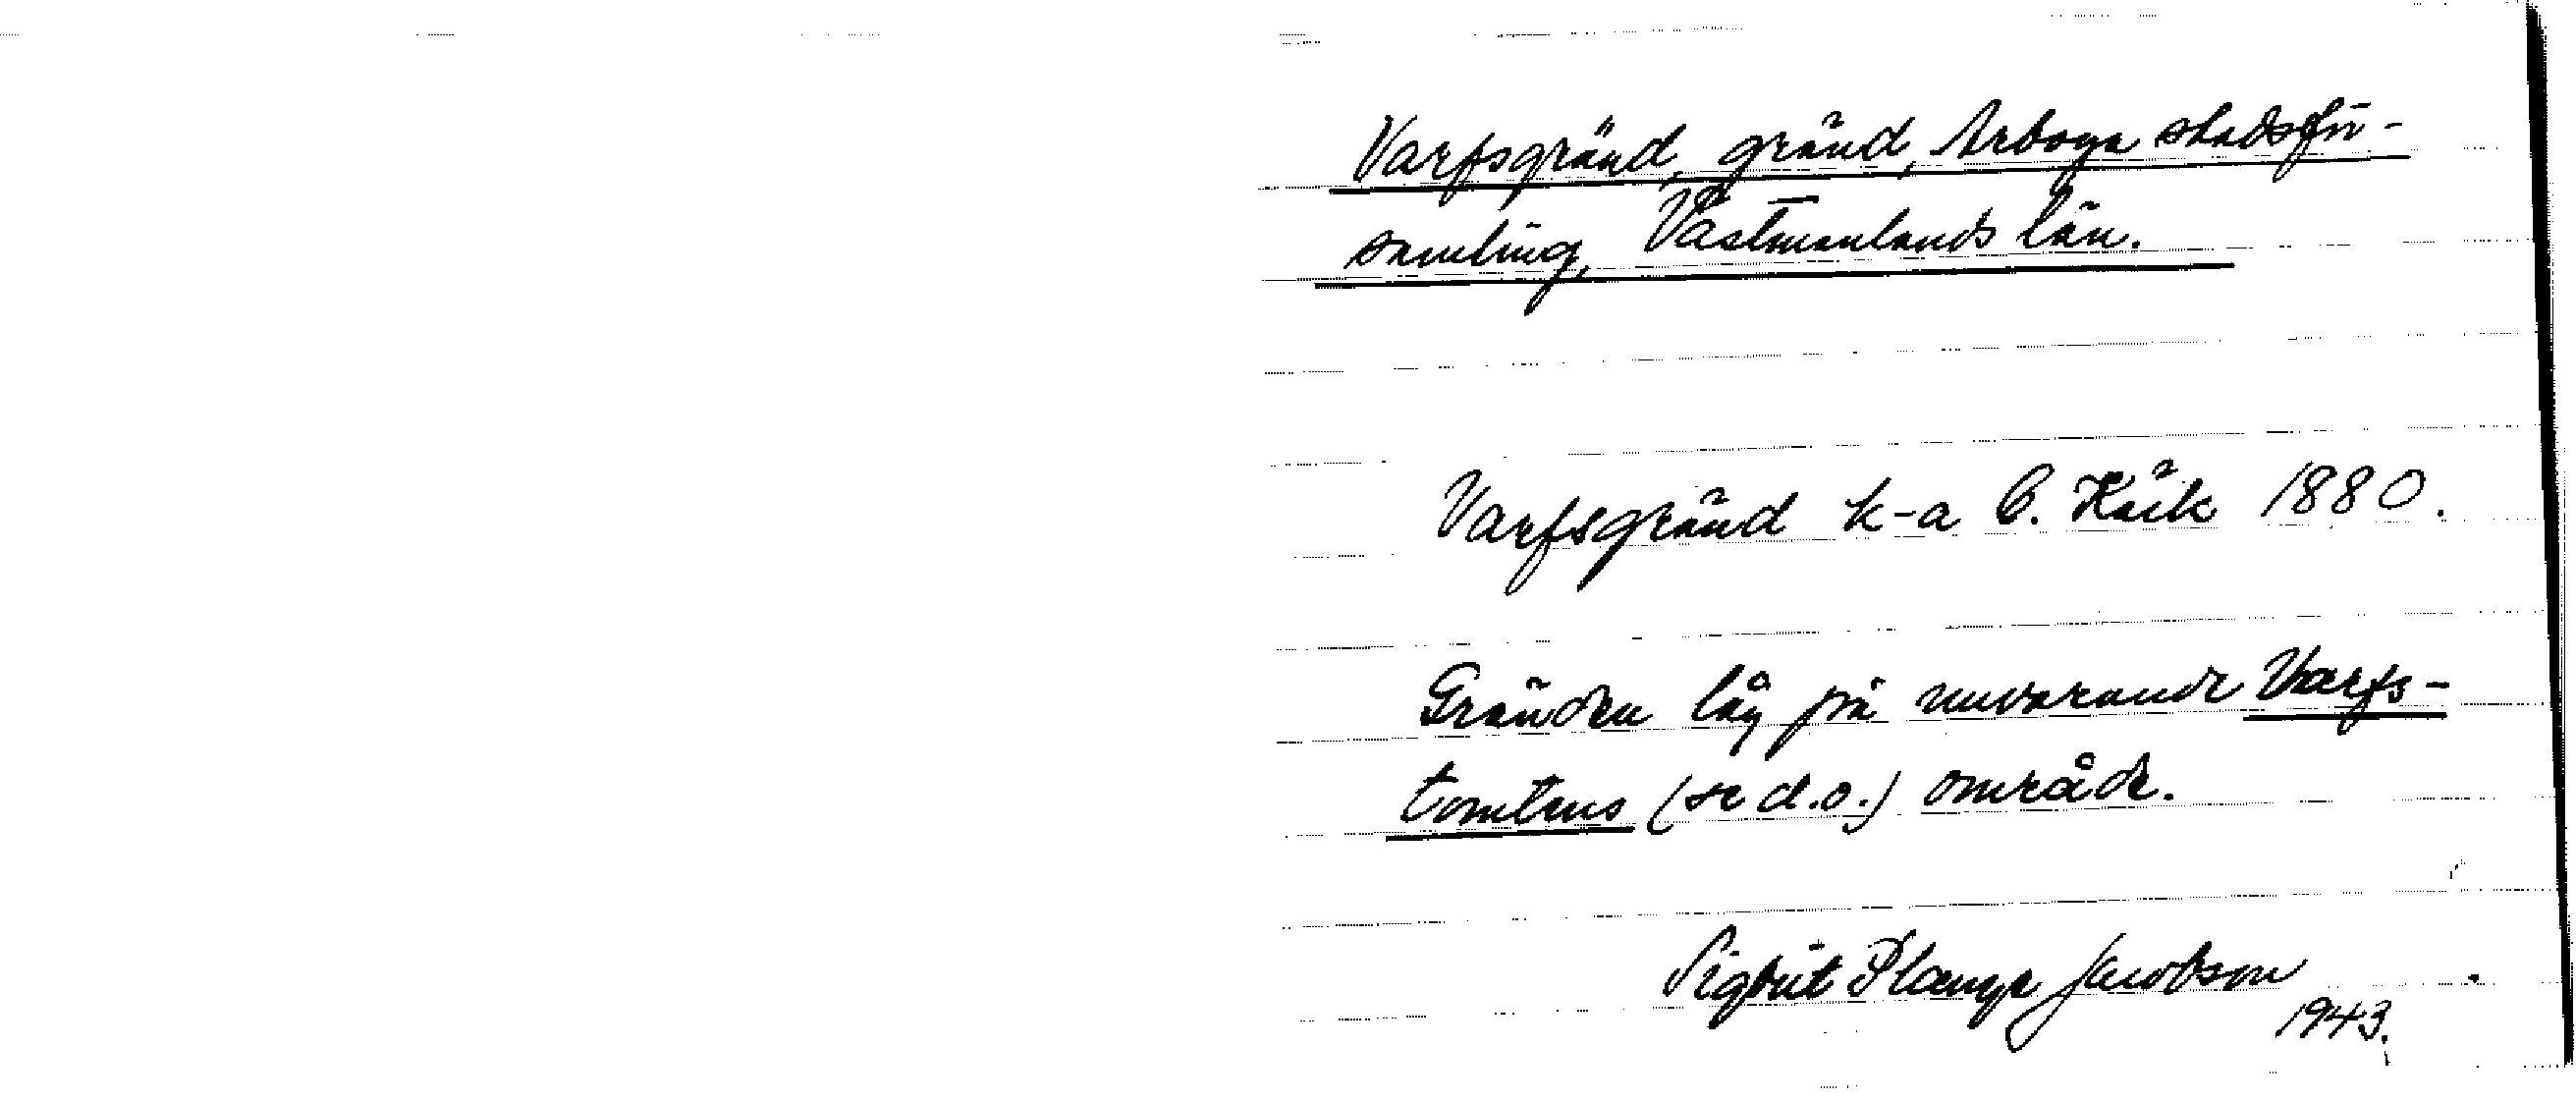 Varfsgränd, gränd, Arboga stadsför-
samling, Västmanlands län.
Varfsgränd k-a C. Käik 1880.
Gränden låg på nuvarande Varfs-
tomtens (se d.o.) område.
Sigbrit Plænge Jacobson
1943.